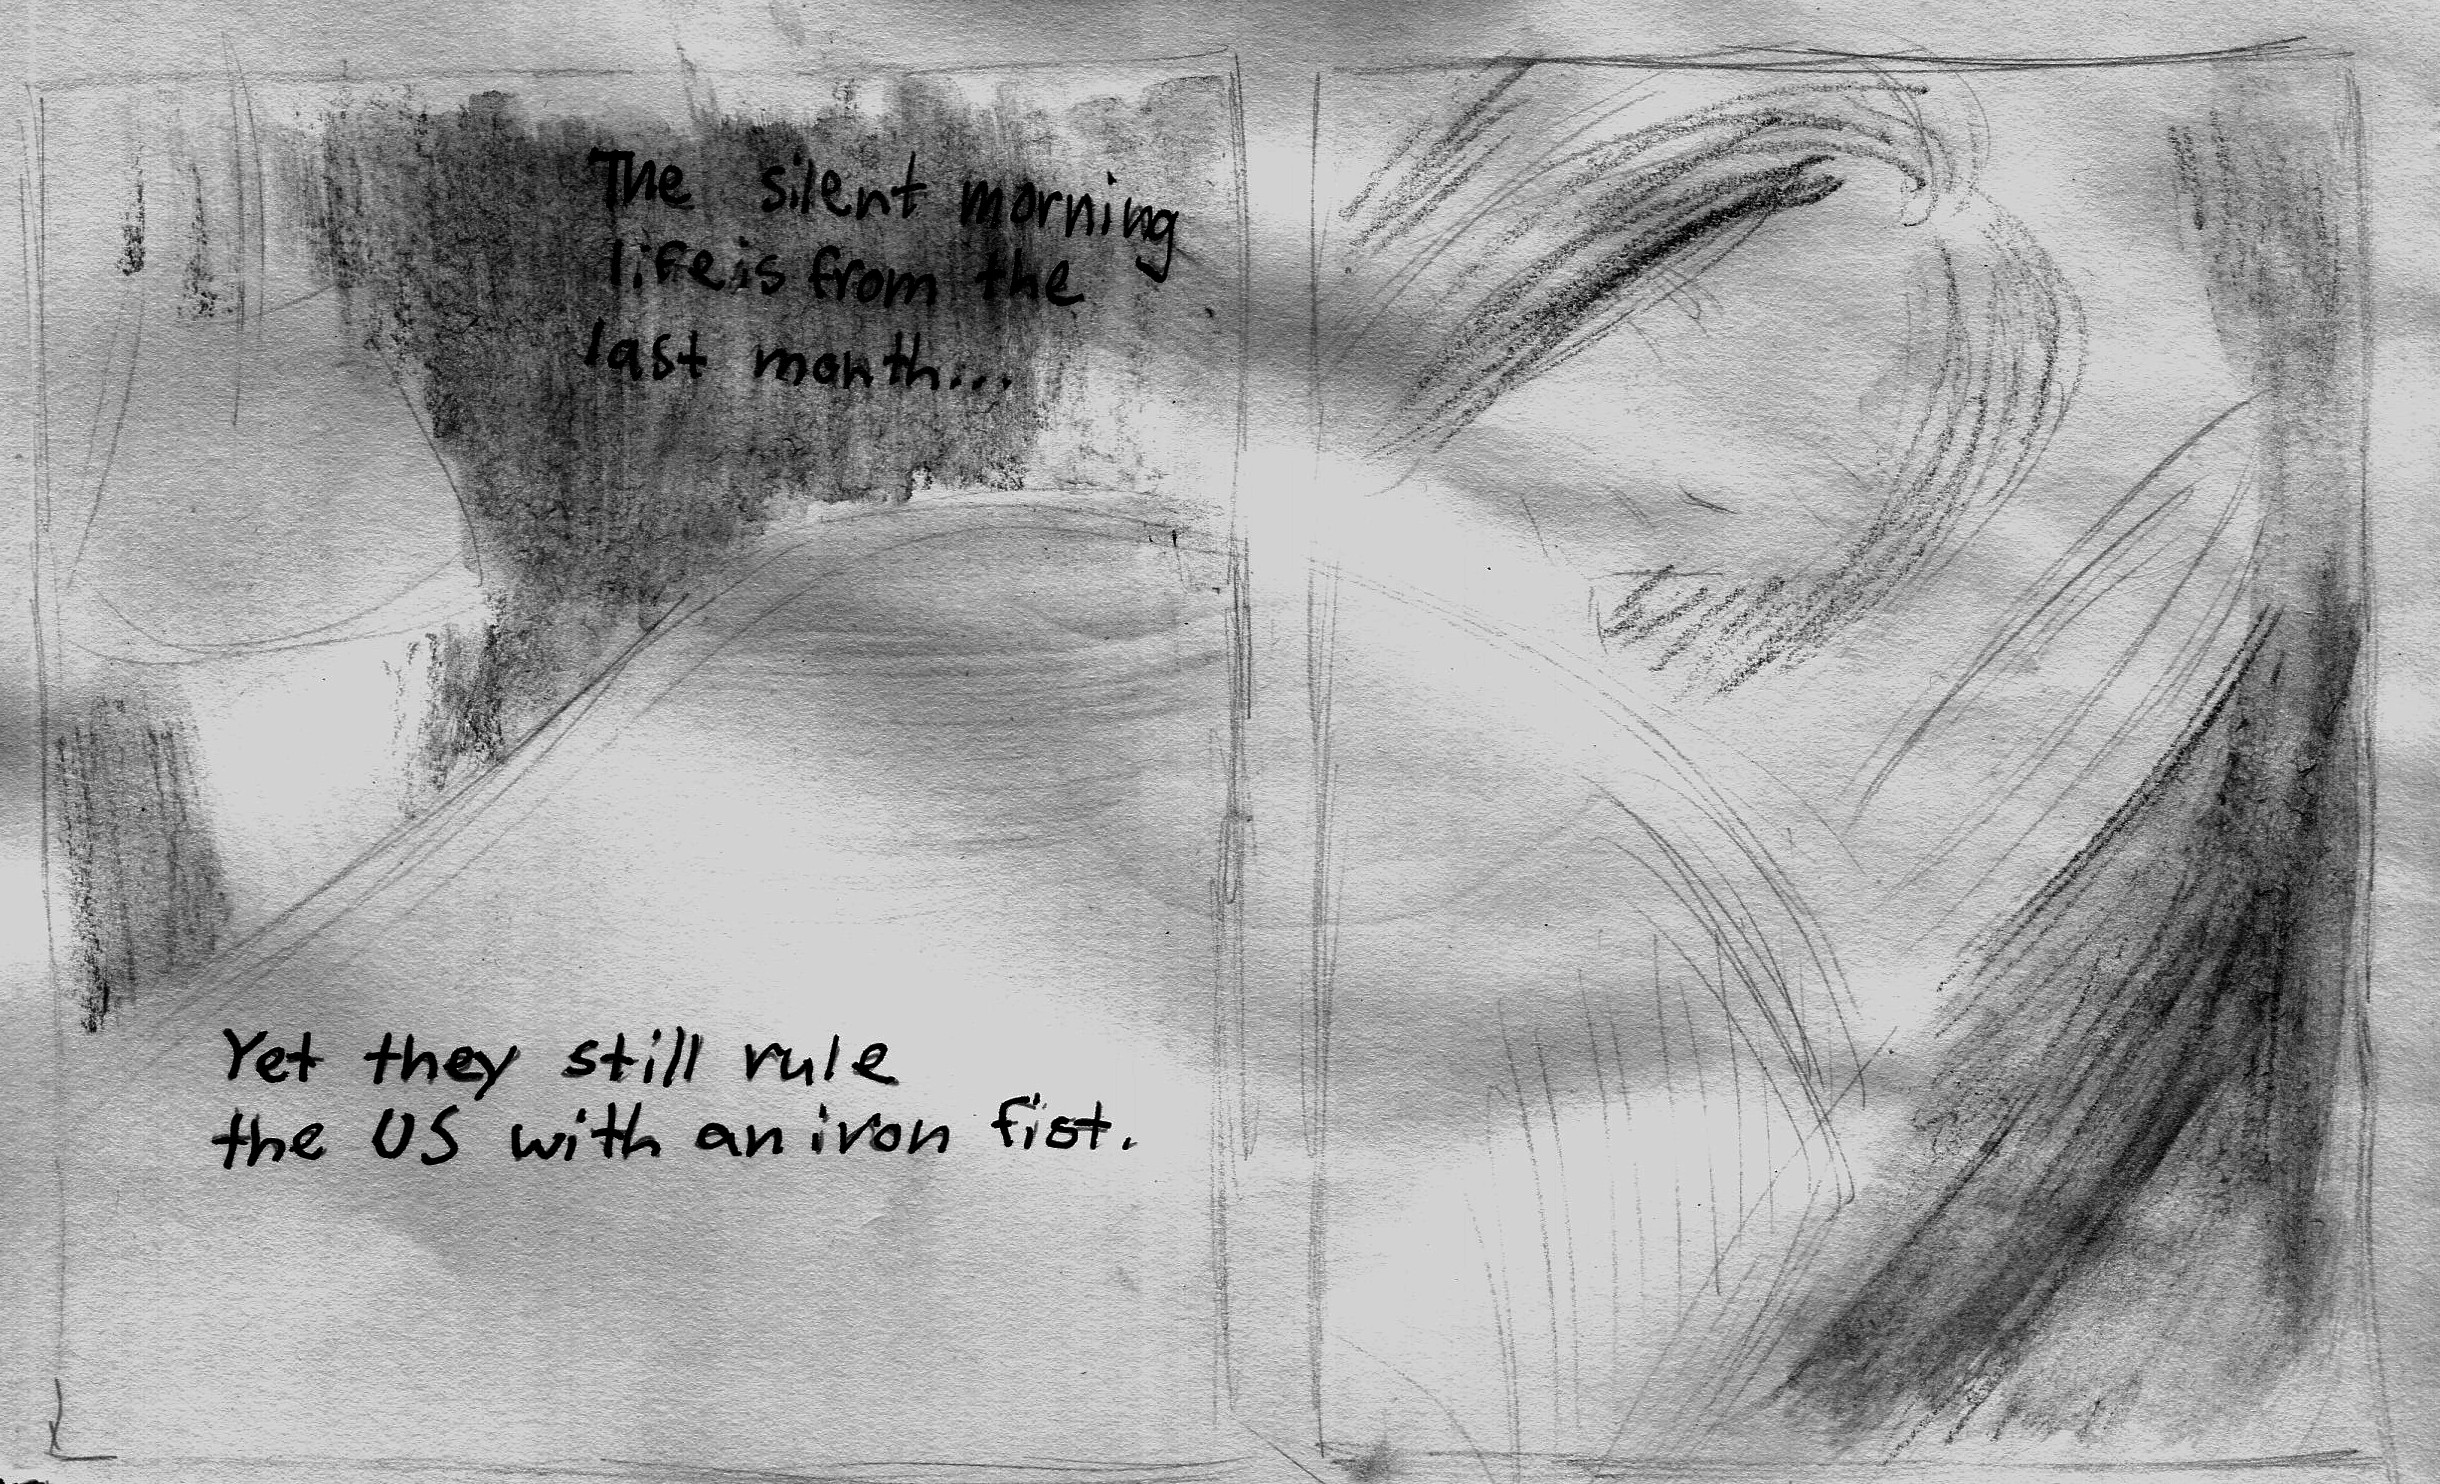 The silent morning
life is from the
last month...
Yet they still rule
the US with an iron fist.